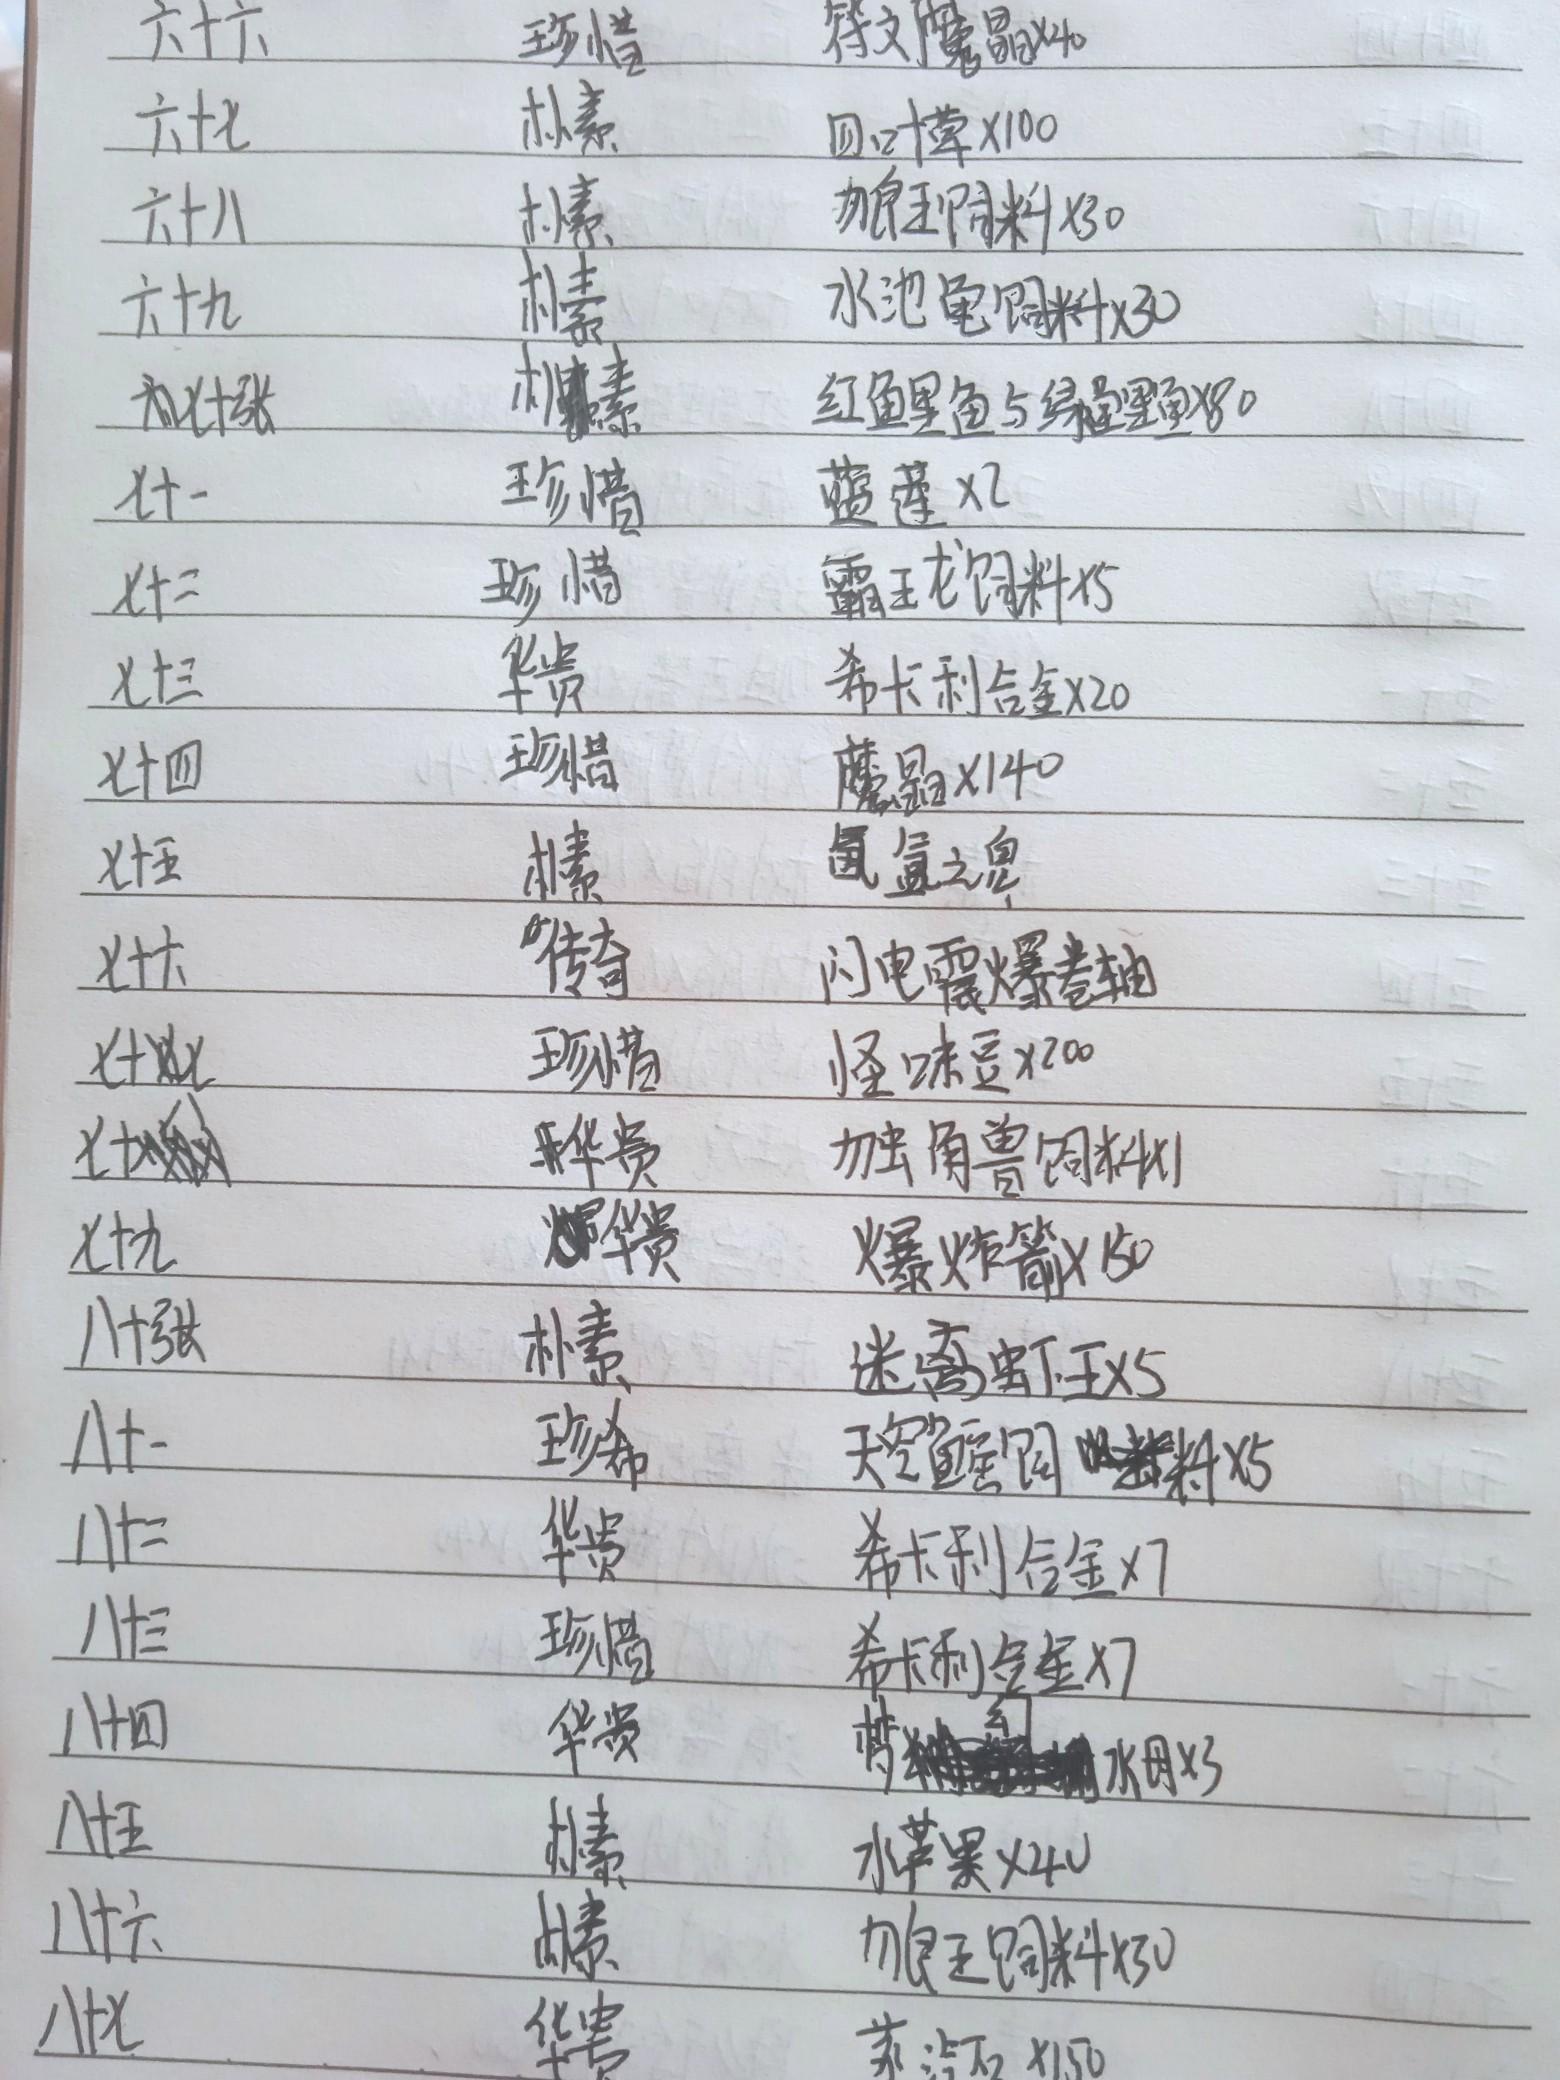 六十六 珍惜 符文魔晶x40
六十七 朴素 四叶草x100
六十八 朴素 狼王饲料x30
六十九 朴素 水池龟饲料x30
七十张 朴素 红鲤鱼与绿鲤鱼x80
七十一 珍惜 蓝莲x2
七十二 珍惜 霸王龙饲料x5
七十三 华贵 希卡利合金x20
七十四 珍惜 魔晶x140
七十五 朴素 之息
七十六 传奇 闪电震爆卷轴
七十七 珍惜 怪味豆x200
七十 华贵 独角兽饲料x1
七十九 华贵 爆炸箭x150
八十张 朴素 迷离虾王x5
八十一 珍希 天空鲨饲料x5
八十二 华贵 希卡利合金x7
八十三 珍惜 希卡利合金x7
八十四 华贵 梦幻水母x3
八十五 朴素 水苹果x40
八十六 朴素 狼王饲料x30
八十七 华贵 x150